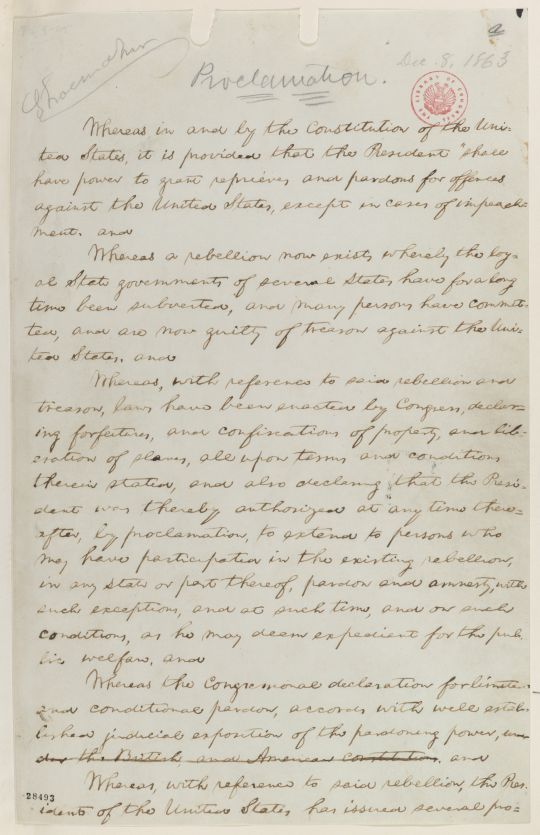 Dec. 8, 1863
Proclamation.
THE LIBRARY OF CONGRESS
Whereas in and by the Constitution of the Uni-
ted States, it is provided that the President "shall
have power to grant reprieves and pardons for offences
against the United States, except in cases of impeach-
ment. and
Whereas a rebellion now exists whereby the loy-
al State governments of several States have for a long
time been subverted, and many persons have commit-
ted, and are now guilty of treason against the Uni-
ted States, and
Whereas, with reference to said rebellion and
treason, laws have been enacted by Congress, declar-
ing forfeitures, and confiscations of property, and lib-
eration of slaves, all upon terms and conditions
therein stated, and also declaring that the Presi-
dent was thereby authorized at any time there-
after, by proclamation, to extend to persons who
may have participated in the existing rebellion,
in any State or part thereof, pardon and amnesty, with
such exceptions, and at such time, and on such
conditions, as he may deem expedient for the pub-
lic welfare, and
Whereas the Congressional declaration for limited
and conditional pardon, accords with well estab-
lished judicial exposition of the pardoning power, un-
der the British, and American constitution, and
Whereas, with reference to said rebellion, the Pres-
ident of the United States has issued several pro-
28493